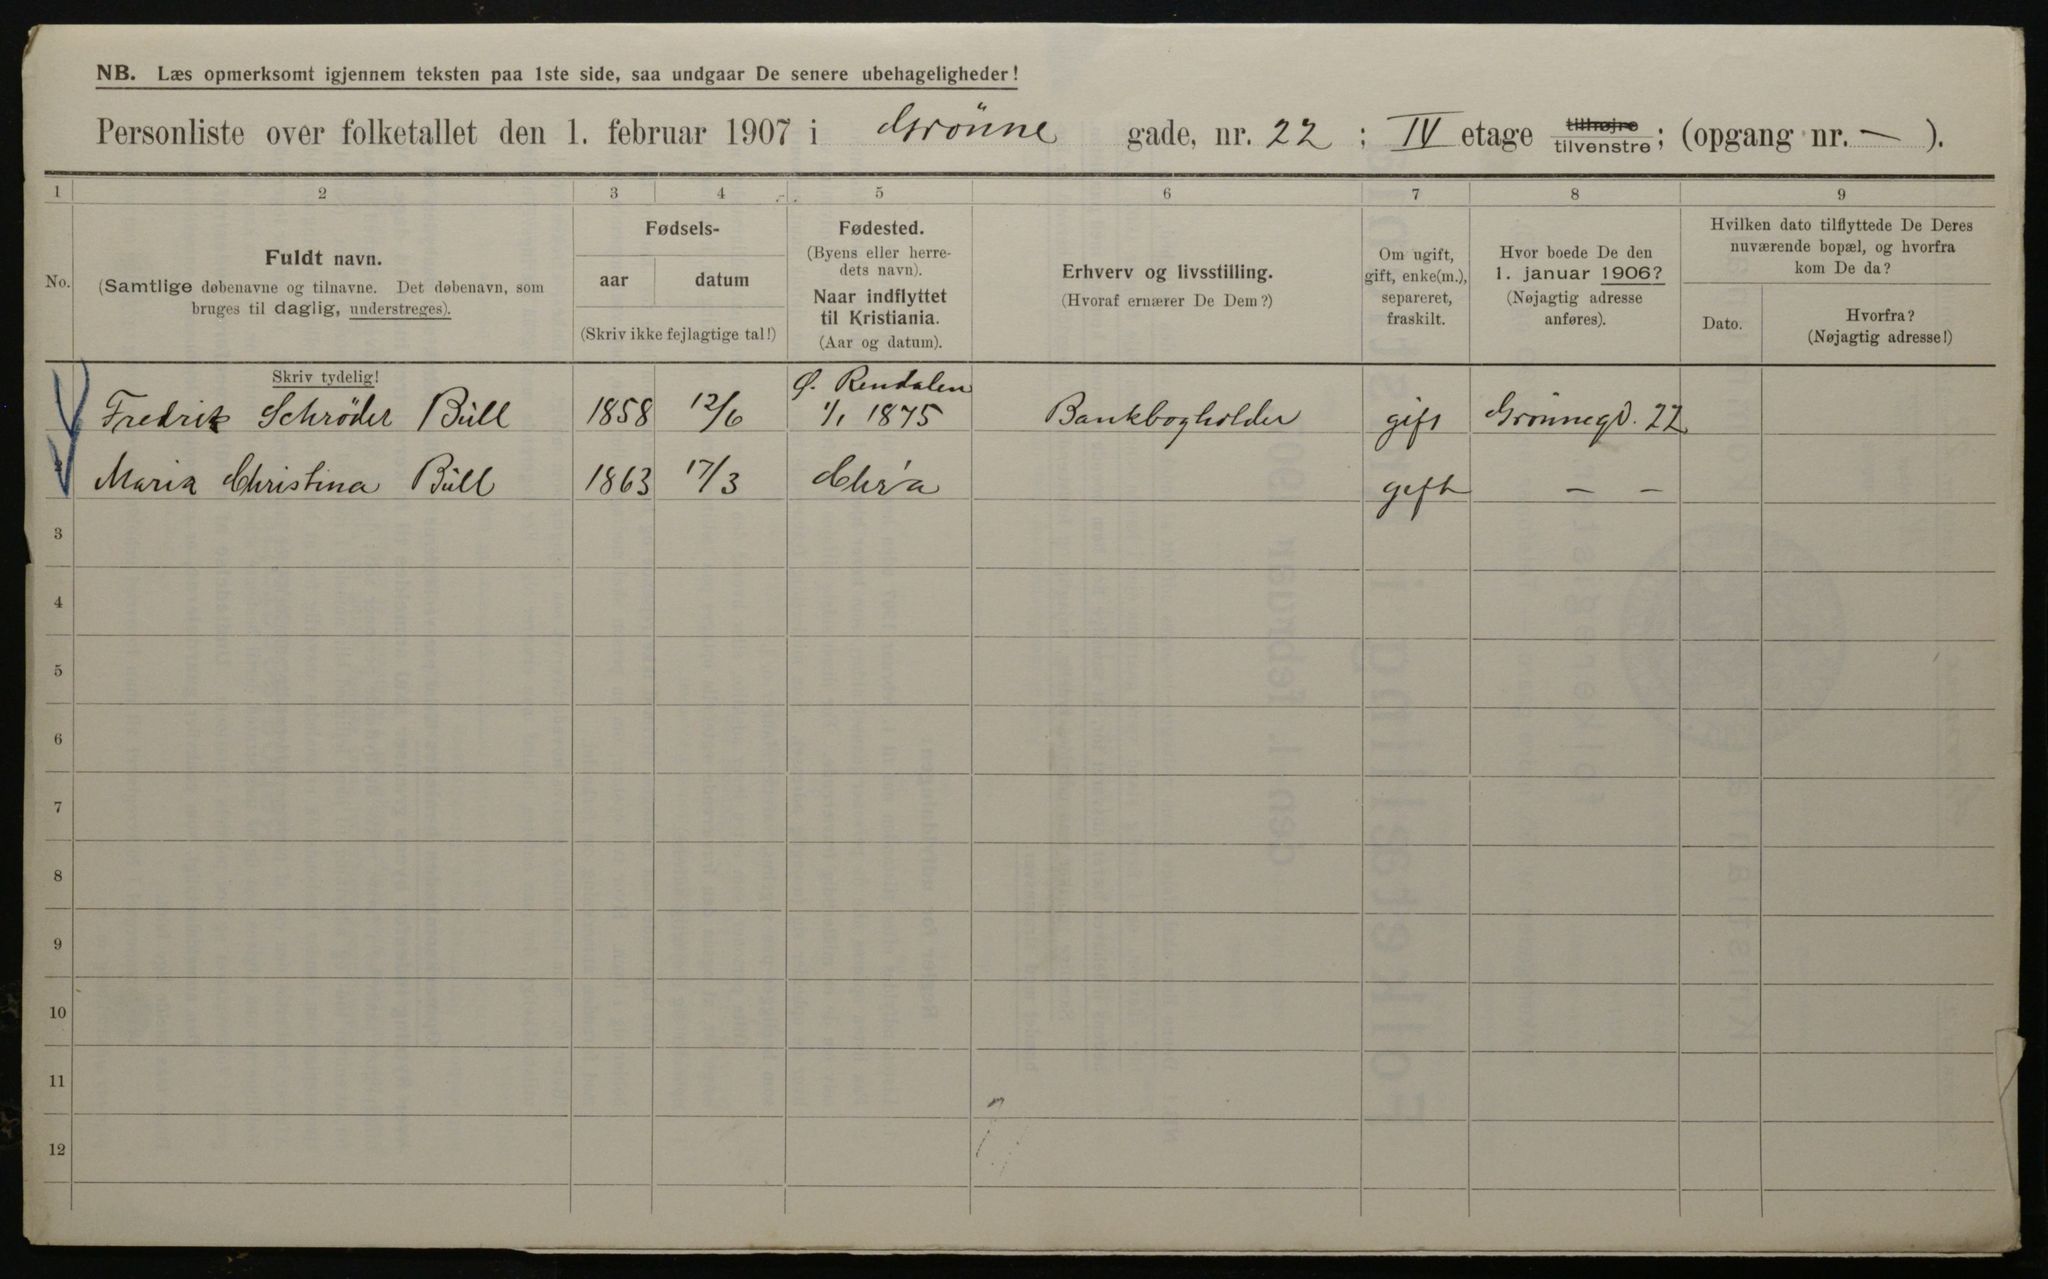 NB. Læs opmerksomt igjennem teksten paa 1ste side, saa undgaar De senere ubehageligheder!
Personliste over folketallet den 1. februar 1907 i Grönne gade, nr. 22 ; IV etage tilhøjre tilvenstre; (opgang nr. — ).
1 2 3 4 5 6 7 8 9
No.
Fuldt navn.
(Samtlige døbenavne og tilnavne. Det døbenavn, som
bruges til daglig, understreges).
Fødsels-
aar datum
(Skriv ikke fejlagtige tal!)
Fødested.
(Byens eller herre-
dets navn).
Naar indflyttet
til Kristiania.
(Aar og datum).
Erhverv og livsstilling.
(Hvoraf ernærer De Dem?)
Om ugift,
gift, enke(m.),
separeret,
fraskilt.
Hvor boede De den
1. januar 1906?
(Nøjagtig adresse
anføres).
Hvilken dato tilflyttede De Deres
nuværende bopæl, og hvorfra
kom De da?
Dato.
Hvorfra?
(Nøjagtig adresse!)
Skriv tydelig!
Ø. Rendalen
Fredrik Schrøder Bull 1858 12/6 1/1 1875 Bankbogholder gift Grönnegd. 22
2 Maria Christina Bull 1863 17/3 Chr'a gift — —
3
4
5
6
7
8
9
10
11
12